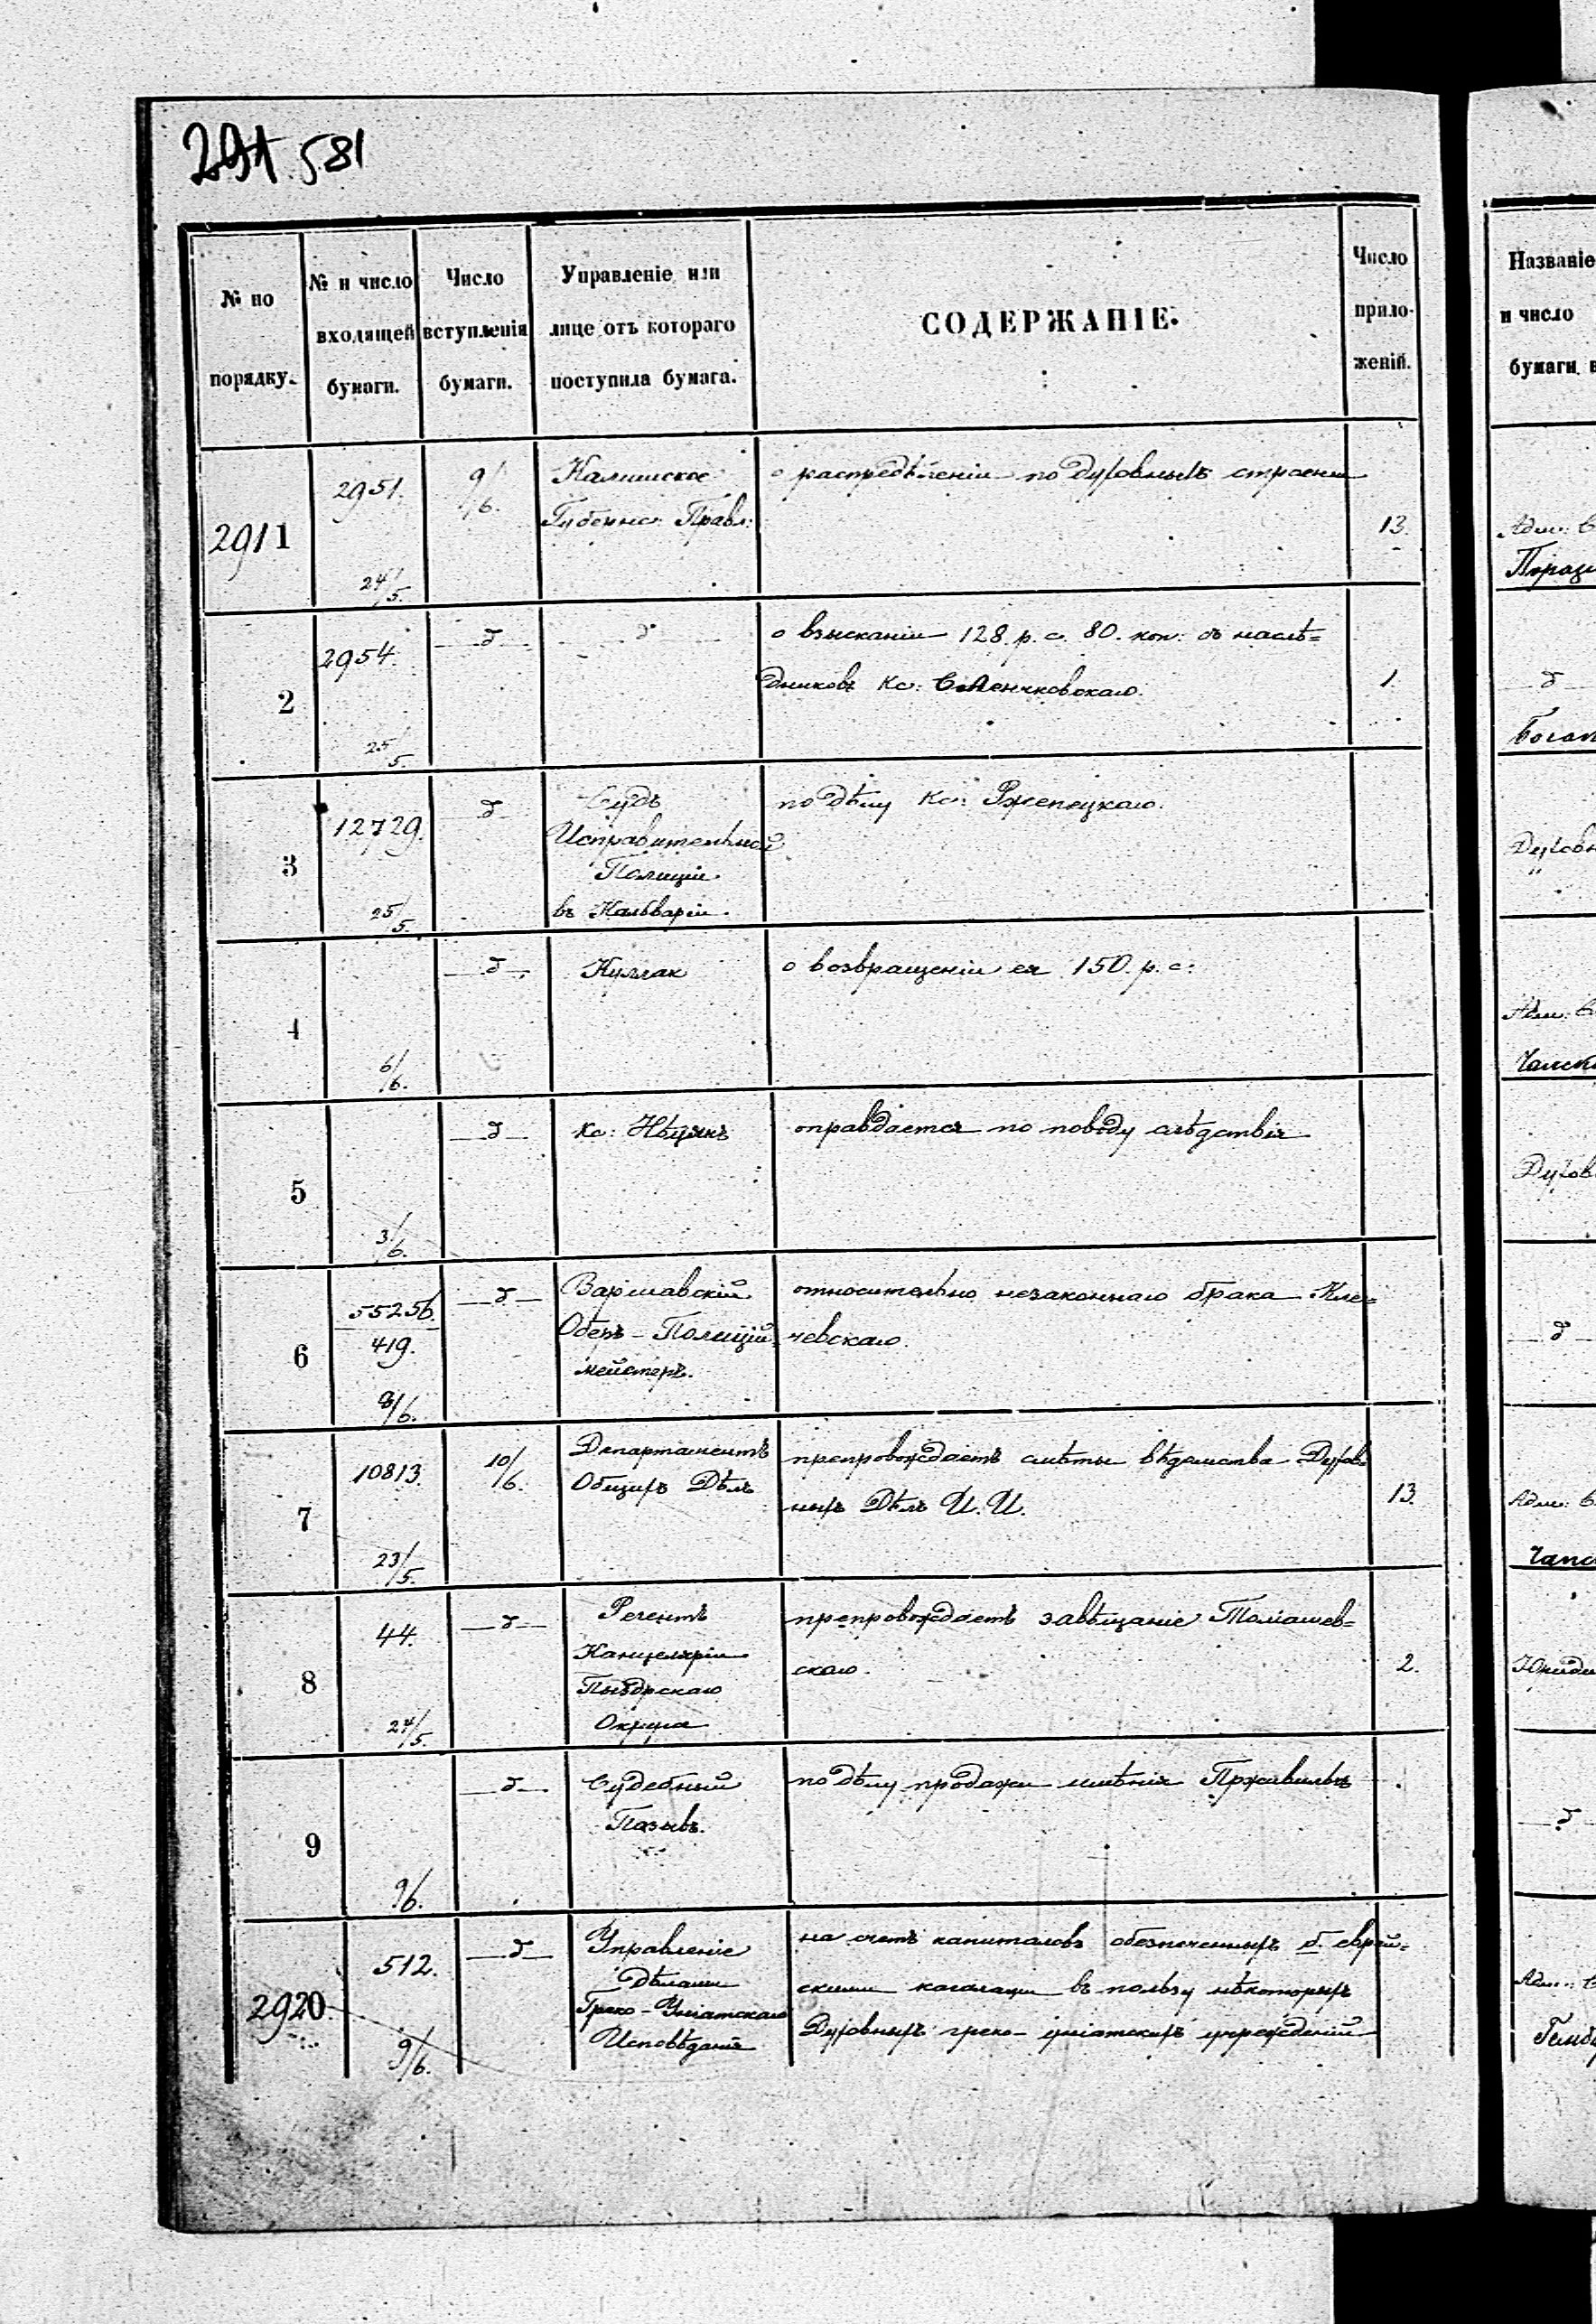 581
№ по порядку.
№ и число входящей бумаги.
Число вступленія бумаги.
Управленіе или лице отъ котораго поступила бумага.
СОДЕРЖАНІЕ.
Число приложеній.
Названіе
и число
бумаги
2911
2951.
24/5.
9/6.
Калишское
Губернс: Правл:
о распредѣленіи по духовныхъ строеніи
13.
Адм:
2
2954.
25/5.
о взысканіи 128 р. с. 80. коп: съ наслѣ=
дниковъ Кс:
1.
3
12729.
25/5.
Судъ
Исправительной
Полиціи
въ Кальваріи.
по дѣлу Кс: Ржепецкаго.
4
6/6.
Кулгак
о возвращеніи ея 150. р. с:
Адм:
5
3/6.
Кс:
оправдается по поводу слѣдствія
6
55256.
419.
8/6.
Варшавскій
Оберъ-Полицій
мейстеръ.
относительно незаконнаго брака Кле=
чевскаго.
7
10813.
23/5.
10/6.
Департаментъ
Общихъ Дѣлъ
препровождаетъ смѣты вѣдомства Духов
ныхъ Дѣлъ И. И.
13.
Адм:
8
44.
24/5.
Регентъ
Канцеляріи
Пыздрскаго
Округа
препровождаетъ завѣщаніе Томашев=
скаго.
2.
9
9/6.
Судебный
Позывъ.
по дѣлу продажи имѣнія
2920
512.
9/6.
Управленіе
Дѣлами
Греко-Уніатскаго
Исповѣданія
на счетъ капиталовъ обезпеченныхъ б. еврей=
скими кагалами въ пользу нѣкоторыхъ
Духовныхъ греко-уніатскихъ учрежденій
Адм: